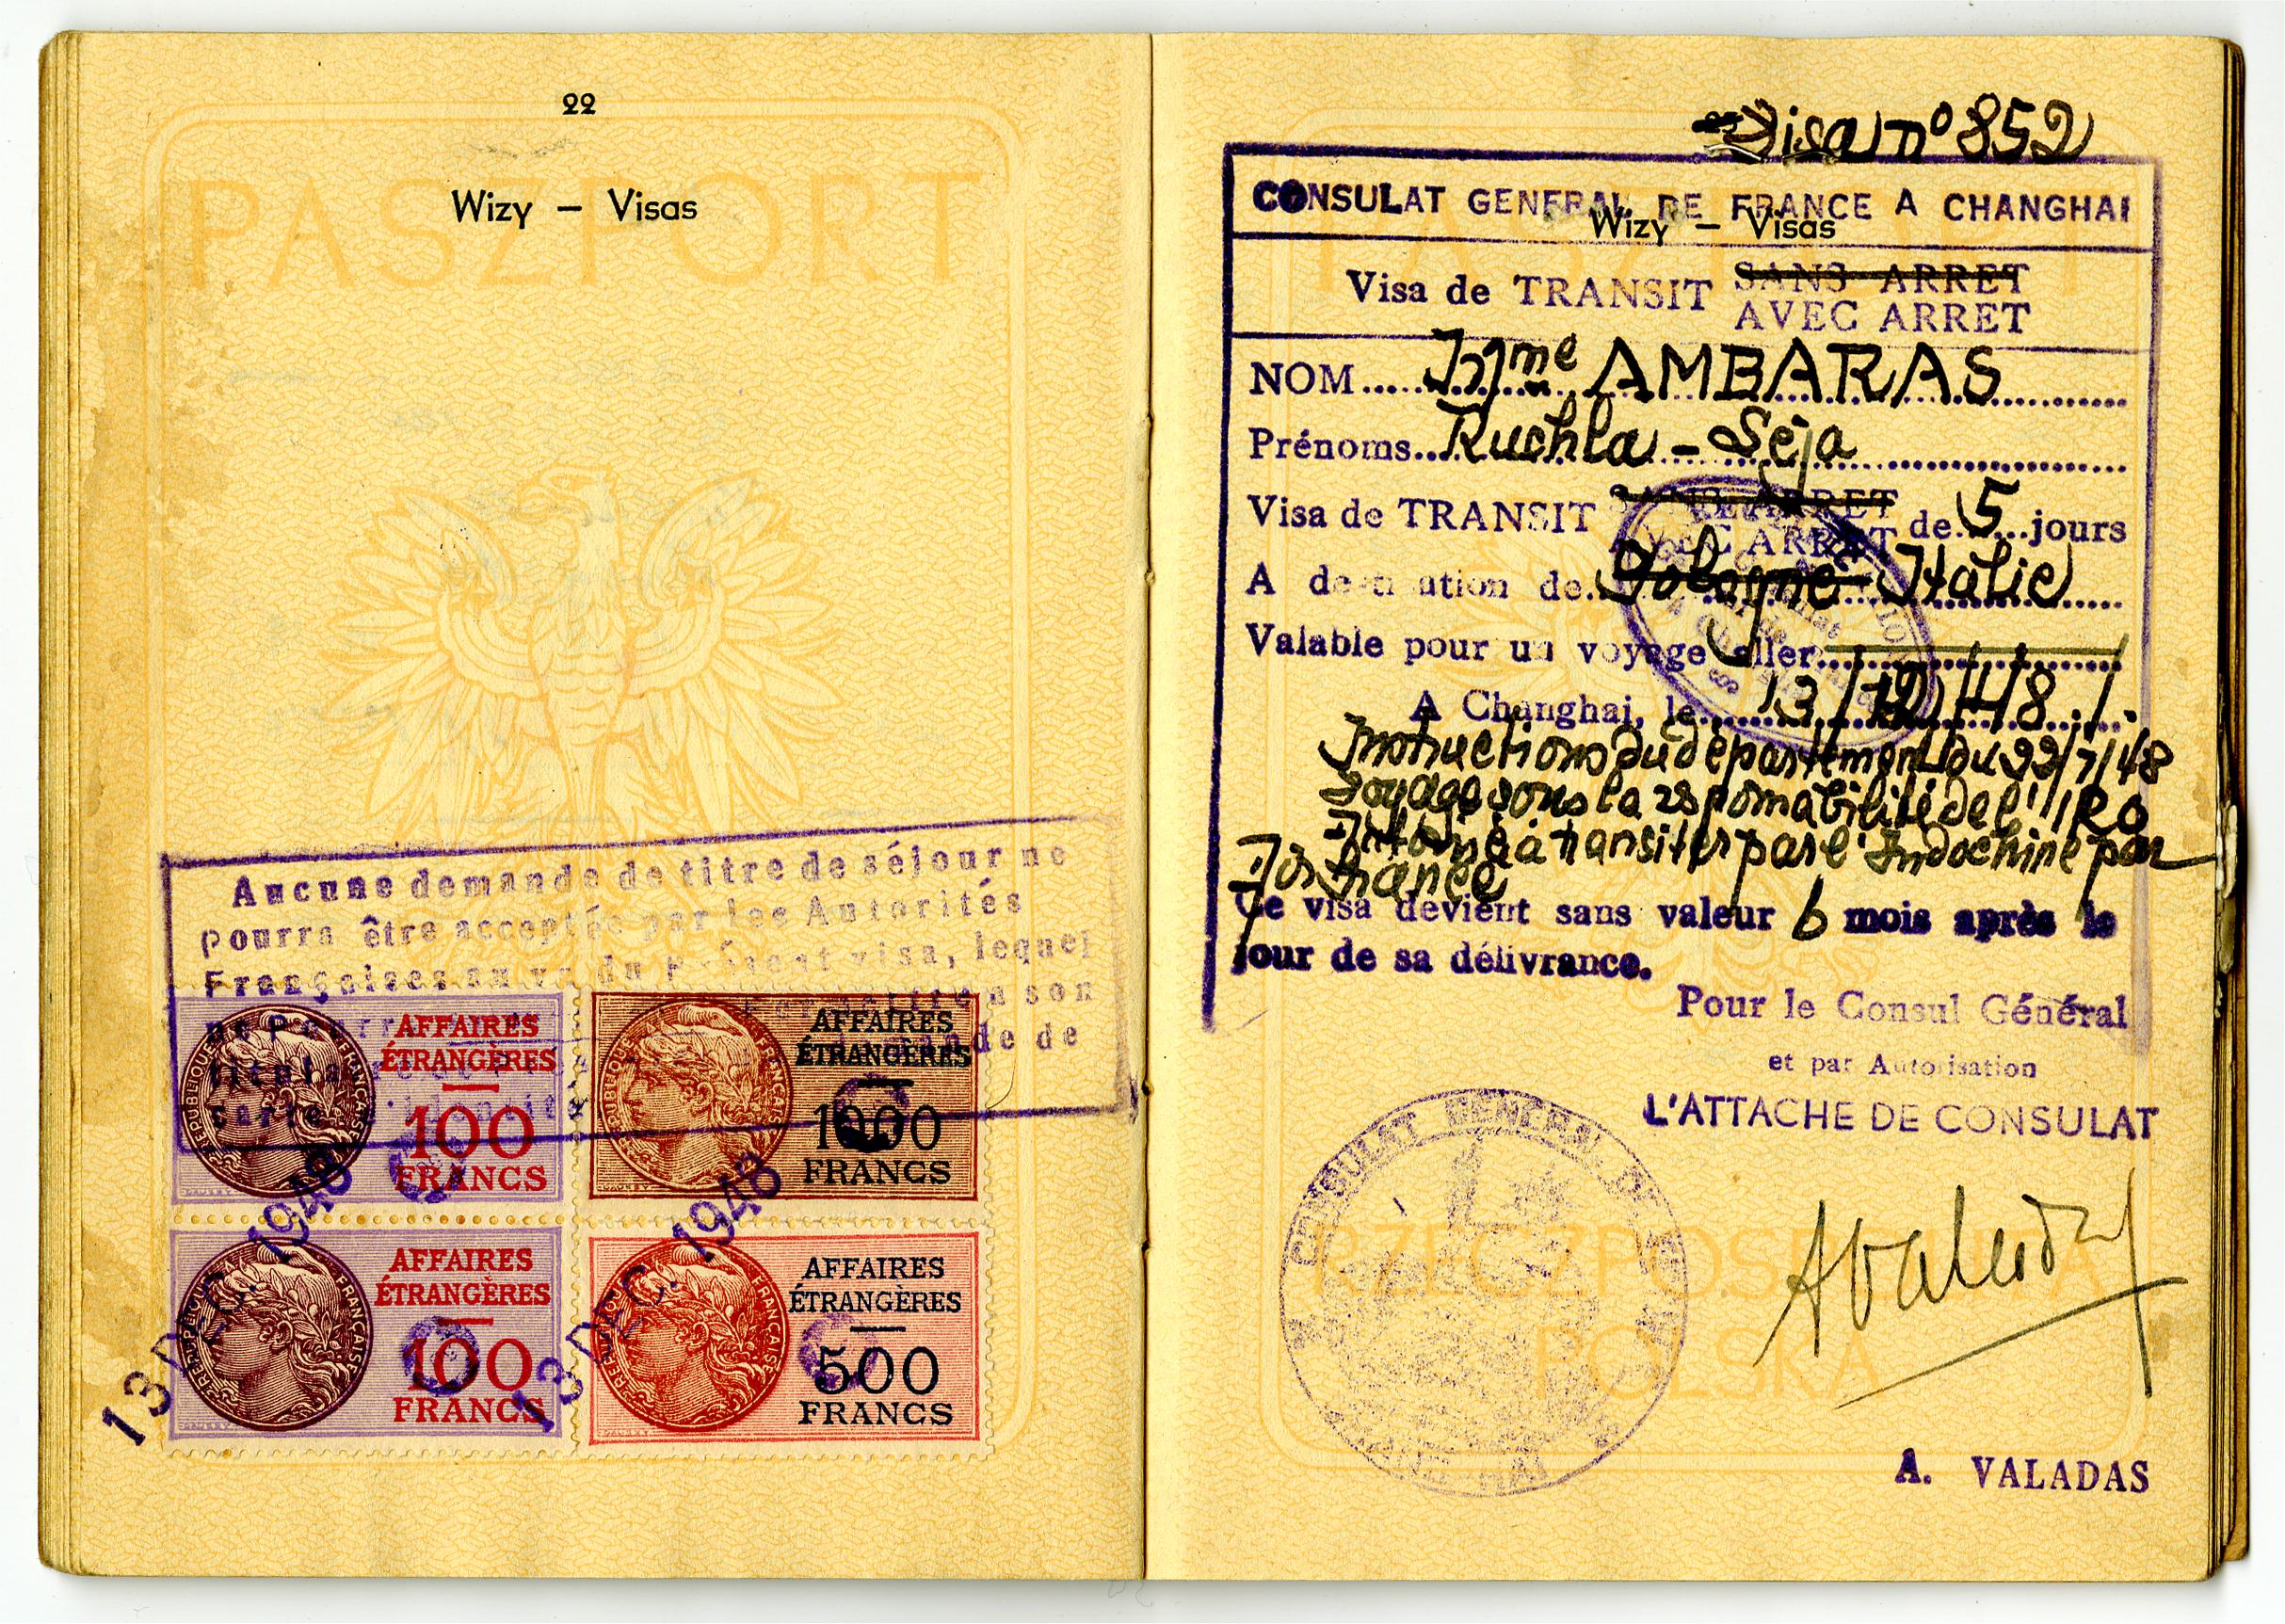 22
PASZPORT
Wizy – Visas
Aucune demande de titre de séjour ne
pourra être acceptée par les Autorités
Françaises au vu du Présent visa, lequel
ne Pourra son
titulaire de
carte d'identité
RÉPUBLIQUE FRANÇAISE
AFFAIRES
ÉTRANGÈRES
100
FRANCS
RÉPUBLIQUE FRANÇAISE
AFFAIRES
ÉTRANGÈRES
1000
FRANCS
RÉPUBLIQUE FRANÇAISE
AFFAIRES
ÉTRANGÈRES
100
FRANCS
RÉPUBLIQUE FRANÇAISE
AFFAIRES
ÉTRANGÈRES
500
FRANCS
13 DEC. 1948
13 DEC. 1948
Visa n° 852
CONSULAT GENERAL DE FRANCE A CHANGHAI
Wizy – Visas
Visa de TRANSIT SANS ARRET
AVEC ARRET
NOM Mme AMBARAS
Prénoms Ruchla - Seja
Visa de TRANSIT SANS ARRET
AVEC ARRET de 5 jours
A destination de Pologne Italie
Valable pour un voyage aller
A Changhai, le 13/12/48
Instructions du département du 22/7/48
Voyage sous la responsabilité de l'IRO
à transiter par l'Indochine par
France
Ce visa devient sans valeur 6 mois après le
jour de sa délivrance.
Pour le Consul Général
et par Autorisation
L'ATTACHE DE CONSULAT
CONSULAT GENERAL DE FRANCE
CHANG-HAI
RZECZPOSPOLITA
POLSKA
AValadas
A. VALADAS